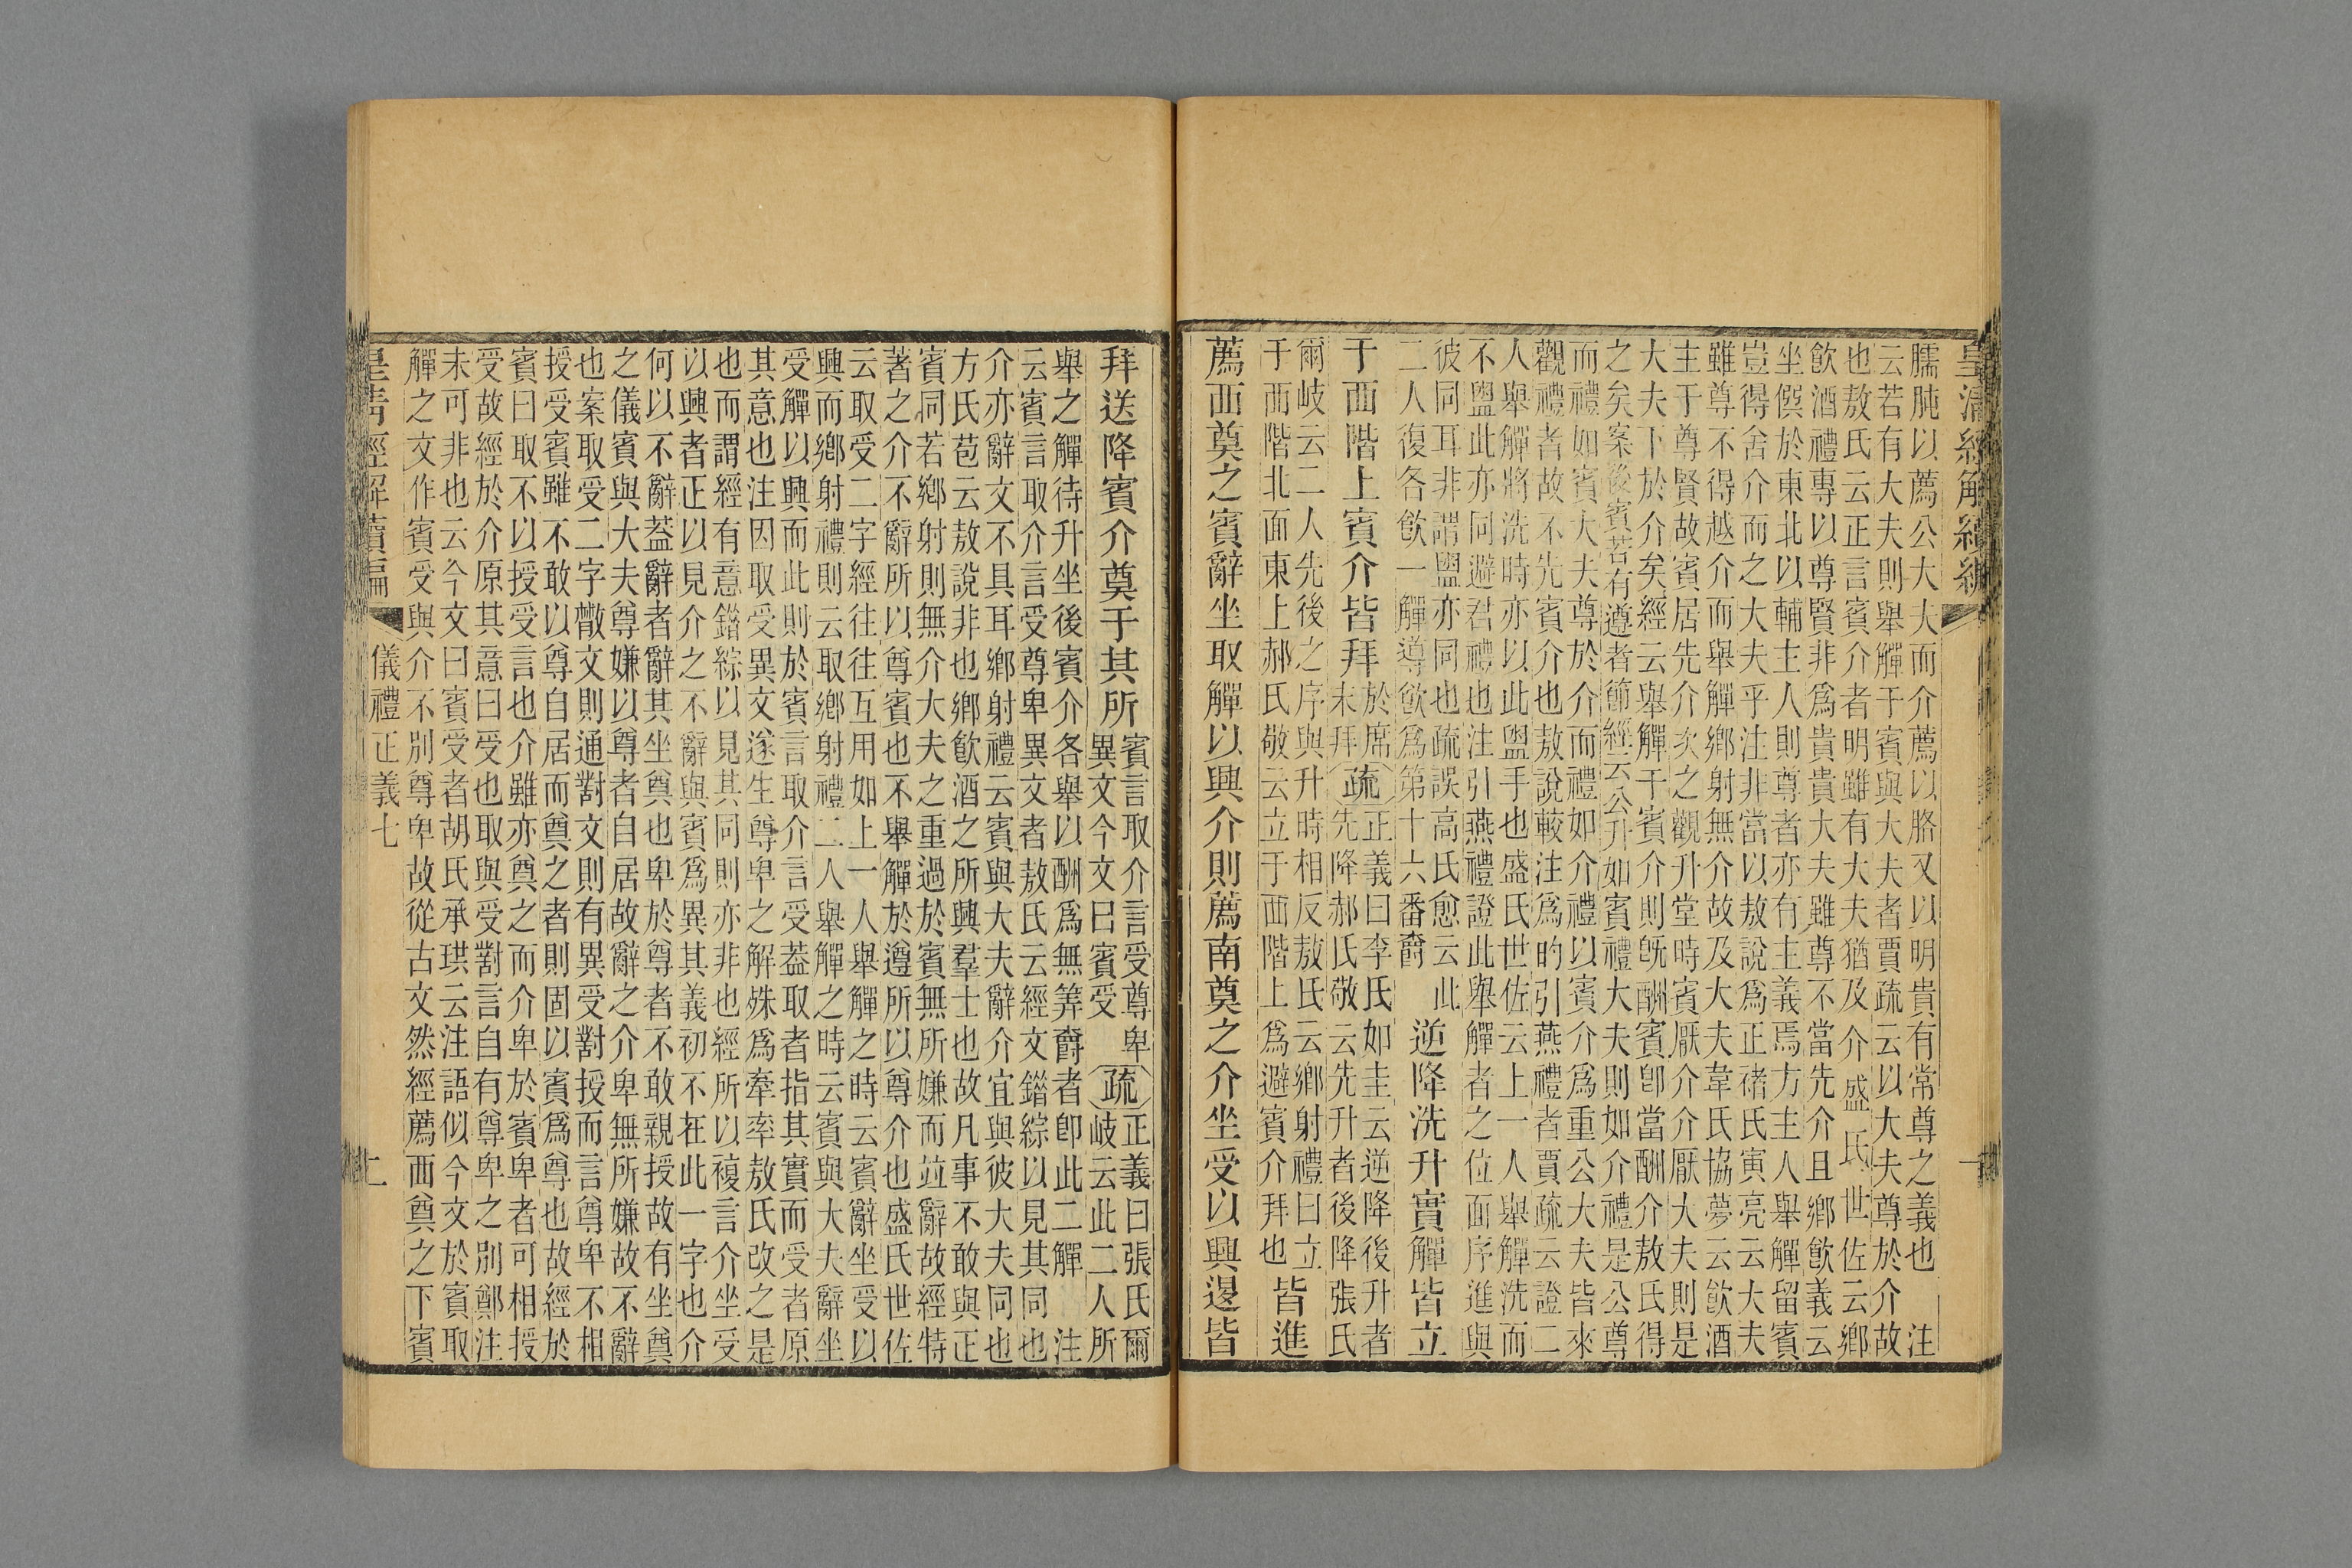 皇清經解續編
臑肫以薦公大夫而介薦以胳又以明貴有常尊之義也　注
云若有大夫則舉觶于賓與大夫者賈疏云以大夫尊於介故
也敖氏云正言賓介者明雖有大夫猶及介盛氏世佐云鄉
飮酒禮專以尊賢非爲貴貴大夫雖尊不當先介且鄉飮義云
坐僎於東北以輔主人則尊者亦有主義焉方主人舉觶留賓
豈得舍介而之大夫乎注非當以敖說爲正褚氏寅亮云大夫
雖尊不得越介而舉觶鄉射無介故及大夫韋氏協夢云飮酒
主于尊賢故賓居先介次之觀升堂時賓厭介介厭大夫則是
大夫下於介矣經云舉觶于賓介則旣酬賓卽當酬介敖氏得
之矣案後賓若有遵者節經云公升如賓禮大夫則如介禮是公尊
而禮如賓大夫尊於介而禮如介禮以賓介爲重公大夫皆來
觀禮者故不先賓介也敖說較注爲的引燕禮者賈疏云證二
人舉觶將洗時亦以此盥手也盛氏世佐云上一人舉觶洗而
不盥此亦同避君禮也注引燕禮證此舉觶者之位面序進與
彼同耳非謂盥亦同也疏誤高氏愈云此
二人復各飮一觶導飮爲第十六番爵
逆降洗升實觶皆立
于西階上賓介皆拜
於席
末拜
疏
正義曰李氏如圭云逆降後升者
先降郝氏敬云先升者後降張氏
爾岐云二人先後之序與升時相反敖氏云鄉射禮曰立
于西階北面東上郝氏敬云立于西階上爲避賓介拜也
皆進
薦西奠之賓辭坐取觶以興介則薦南奠之介坐受以興退皆
拜送降賓介奠于其所
賓言取介言受尊卑
異文今文曰賓受
疏
正義曰張氏爾
岐云此二人所
舉之觶待升坐後賓介各舉以酬爲無筭爵者卽此二觶　注
云賓言取介言受尊卑異文者敖氏云經文錯綜以見其同也
介亦辭文不具耳鄉射禮云賓與大夫辭介宜與彼大夫同也
方氏苞云敖說非也鄉飮酒之所興羣士也故凡事不敢與正
賓同若鄉射則無介大夫之重過於賓無所嫌而竝辭故經特
著之介不辭所以尊賓也不舉觶於遵所以尊介也盛氏世佐
云取受二字經往往互用如上一人舉觶之時云賓辭坐受以
興而鄉射禮則云取鄉射禮二人舉觶之時云賓與大夫辭坐
受觶以興而此則於賓言取介言受葢取者指其實而受者原
其意也注因取受異文遂生尊卑之解殊爲牽率敖氏改之是
也而謂經有意錯綜以見其同則亦非也經所以複言介坐受
以興者正以見介之不辭與賓爲異其義初不在此一字也介
何以不辭葢辭者辭其坐奠也卑於尊者不敢親授故有坐奠
之儀賓與大夫尊嫌以尊者自居故辭之介卑無所嫌故不辭
也案取受二字散文則通對文則有異受對授而言尊卑不相
授受賓雖不敢以尊自居而奠之者則固以賓爲尊也故經於
賓曰取不以授受言也介雖亦奠之而介卑於賓卑者可相授
受故經於介原其意曰受也取與受對言自有尊卑之別鄭注
未可非也云今文曰賓受者胡氏承珙云注語似今文於賓取
觶之文作賓受與介不別尊卑故從古文然經薦西奠之下賓
皇淸經解續編
儀禮正義七
二